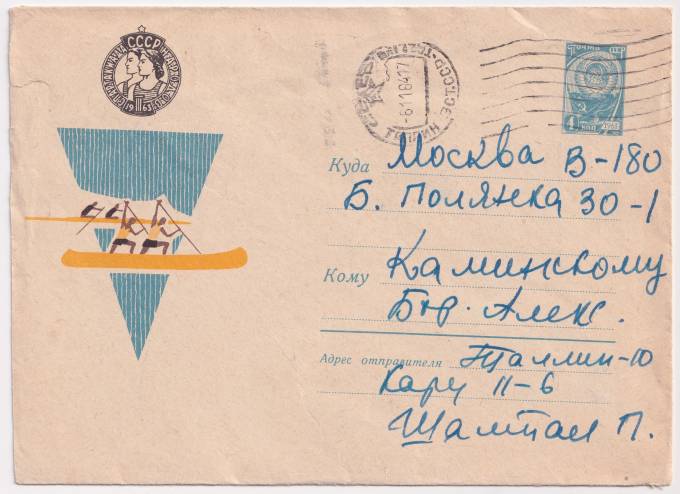 СССР
1963
Почта СССР
4 коп
Куда Москва В-180
Б. Полянка 30-1
Кому Каминскому
Бор. Алек.
Адрес отправителя Таллин-10
Кару 11-6